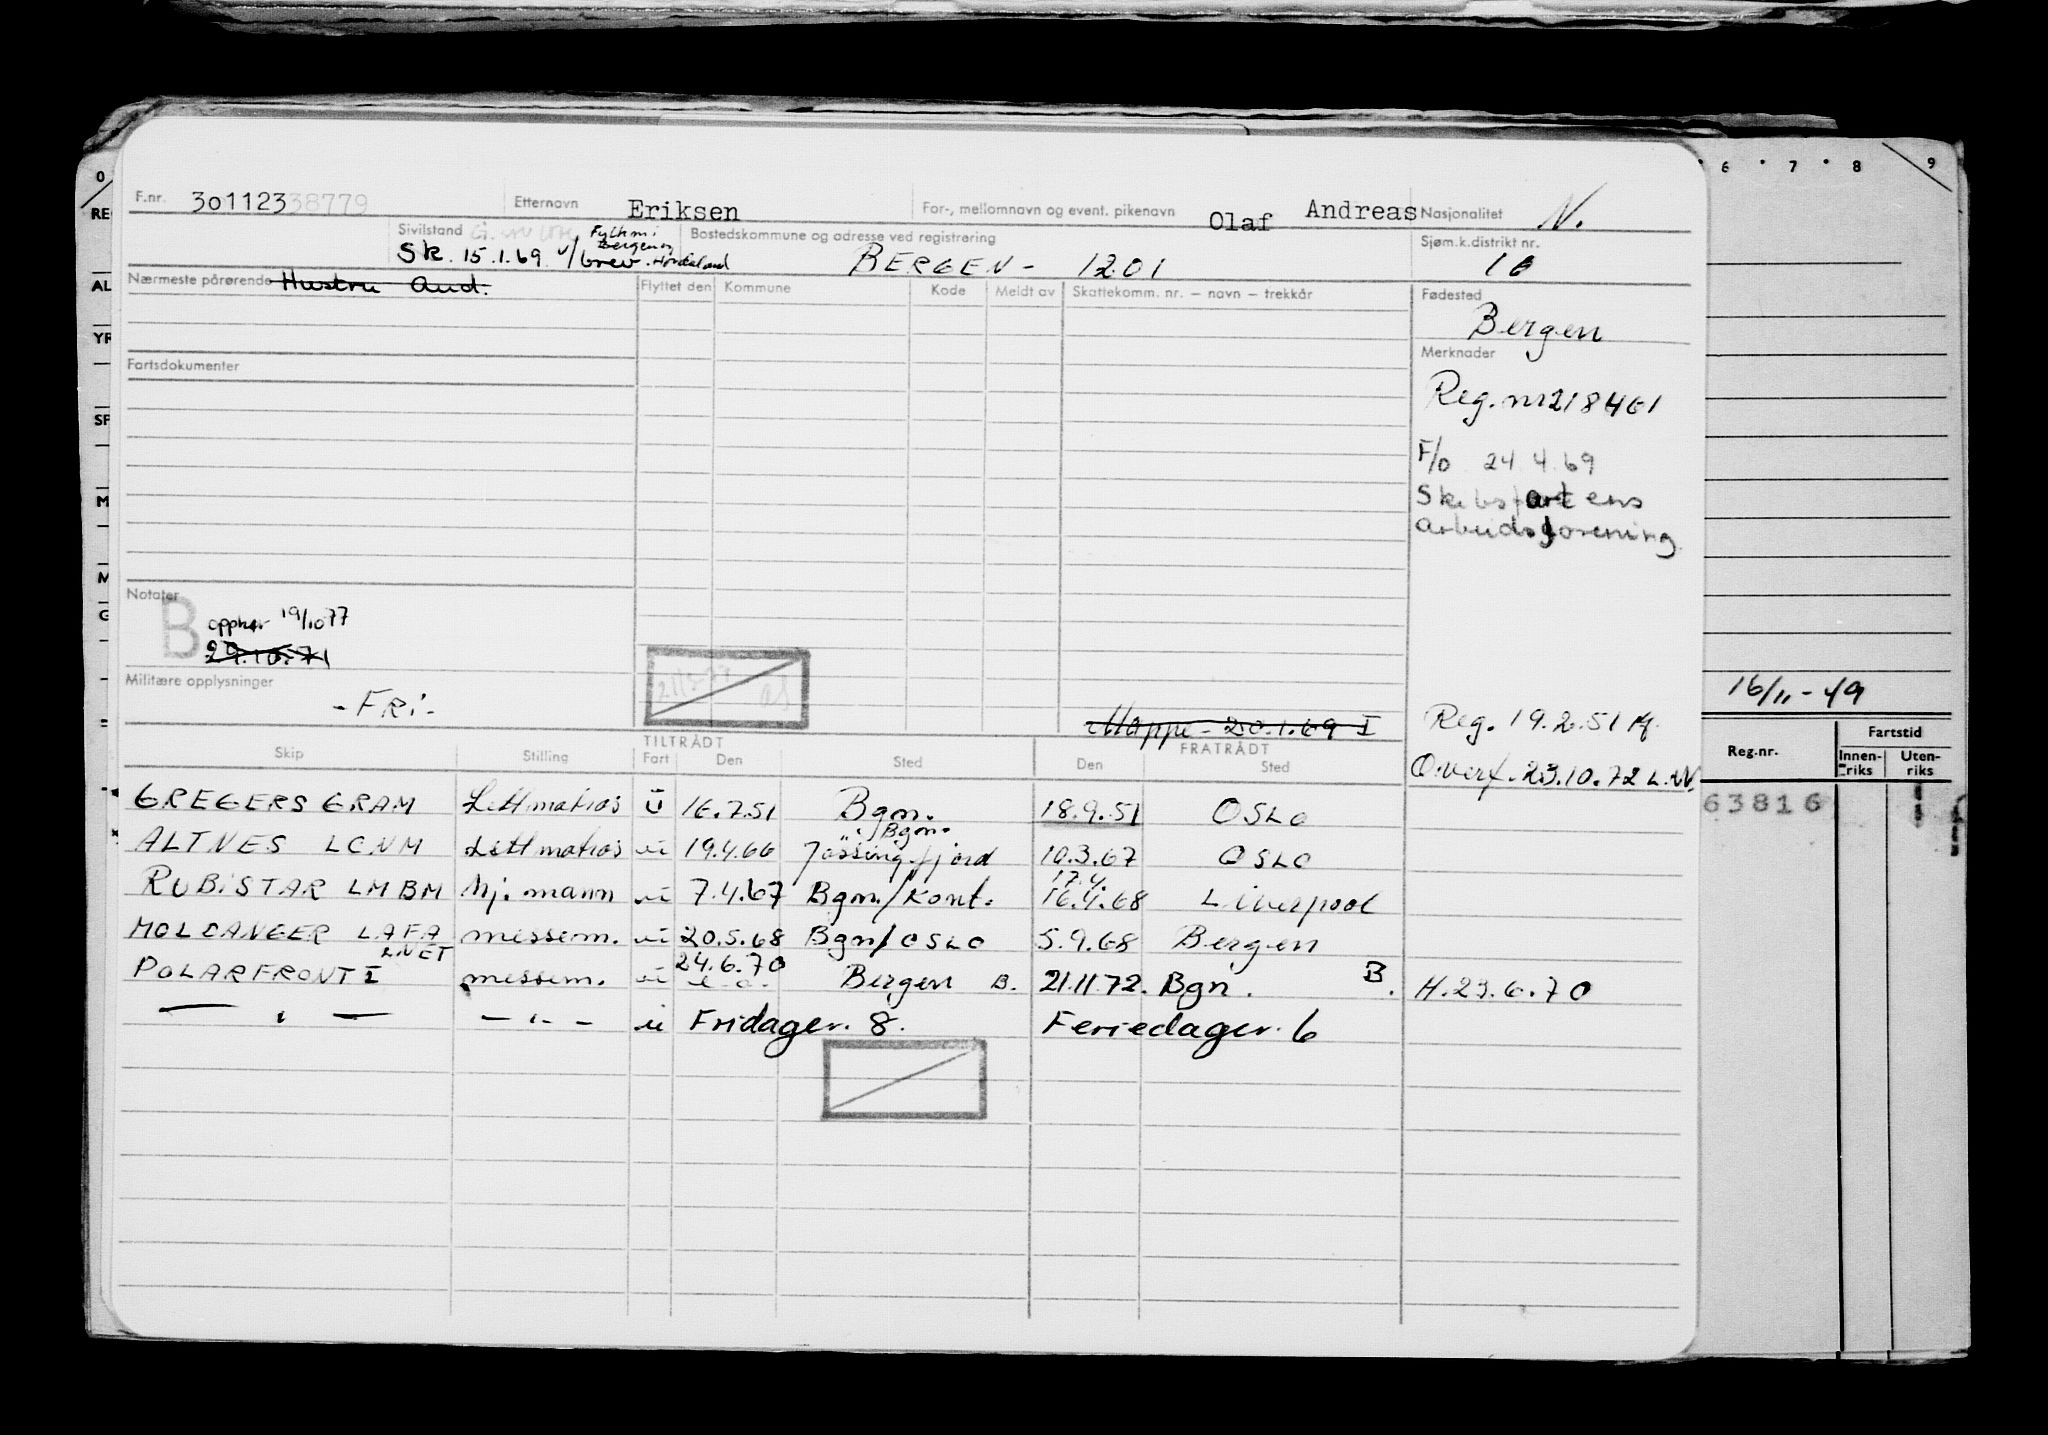 F.nr. 30112338779 Etternavn Eriksen For-, mellomnavn og event. pikenavn Olaf Andreas Nasjonalitet N.
Sivilstand Fylkm i Bergen og Hordaland
Sk. 15.1.69 v/brev.
Bostedskommune og adresse ved registrering
BERGEN - 1201
Sjøm.k.distrikt nr.
16
Nærmeste pårørende Hustru Aud.
Flyttet den Kommune Kode Meldt av Skattekomm. nr. – navn – trekkår
Fødested
Bergen
Merknader
Fartsdokumenter
Reg.nr 218461
F/o 24 4.69
Skibsfartens
arbeidsforening
Notater
B opphør 19/10 77
29.10.71
Militære opplysninger
-FRi-
Mappe - 20.1.69 I
Reg. 19.2.51
Overf. 23.10.72 L.W.
TILTRÅDT FRATRÅDT
Skip Stilling Fart Den Sted Den Sted
GREGERS GRAM Lettmatros ü 16.7.51 Bgn. 18.9.51 OSLO
ALTNES LCNM Lettmatros ui 19.4.66 Jøssingfjord /Bgn. 10.3.67 OSLO
RUBISTAR LMBM hj. mann ui 7.4.67 Bgn./Kont. 17.4. 16.4.68 Liverpool
MOLDANGER LAFA messem. ui 20.5.68 Bgn/OSLO 5.9.68 Bergen
LNET
POLARFRONT I messem. ui 24.6.70 Bergen B. 21.11.72. Bgn. B. H.23.6.70
— " — - " - ui Fridager. 8. Feriedager. 6
0 6 7 8 9
RE
AL
YR
SF
M
M
G
16/11-49
Reg.nr. Fartstid
Innen-
riks
Uten-
riks
63816